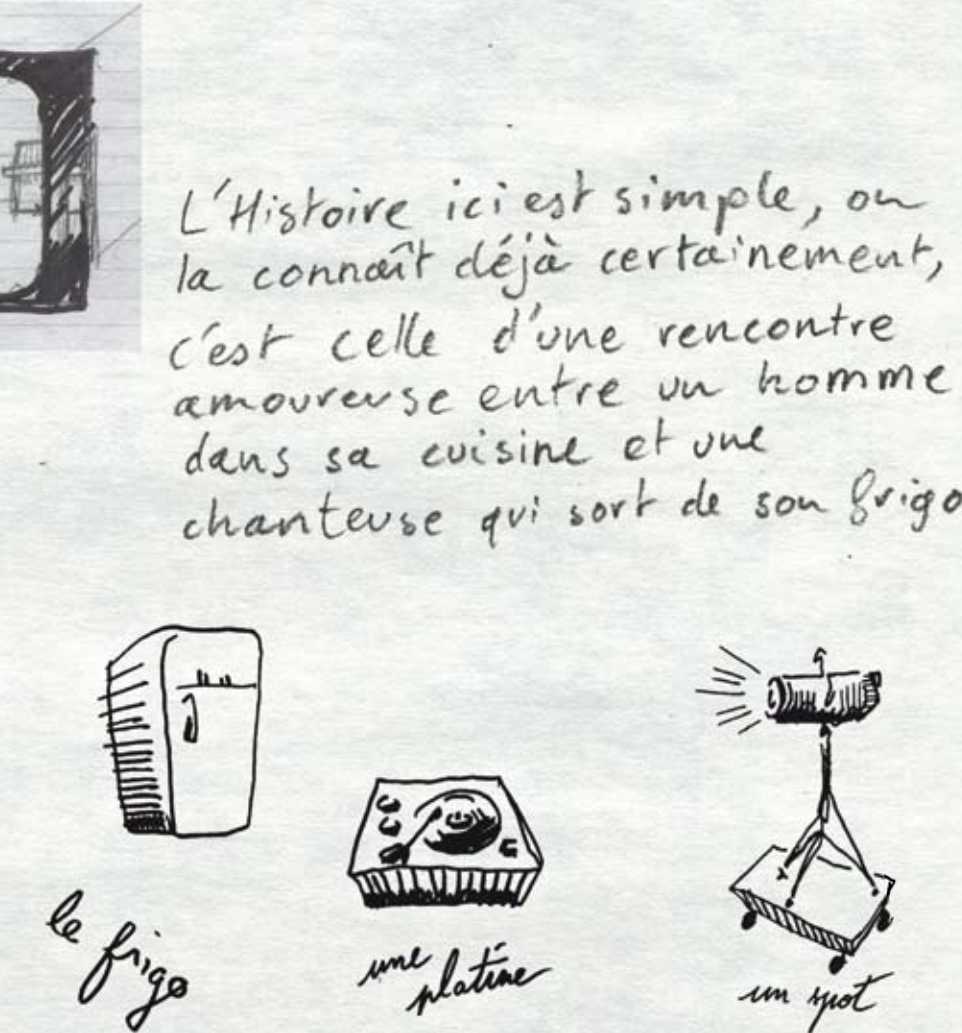 L'Histoire ici est simple, on
la connaît déjà certainement,
c'est celle d'une rencontre
amoureuse entre un homme
dans sa cuisine et une
chanteuse qui sort de son frigo
le frigo
une platine
un spot